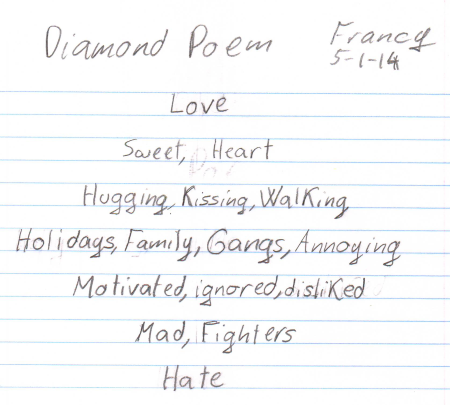 Diamond Poem Francy
5-1-14
Love
Sweet, Heart
Hugging, Kissing, Walking
Holidays, Family, Gangs, Annoying
Motivated, ignored, disliked
Mad, Fighters
Hate